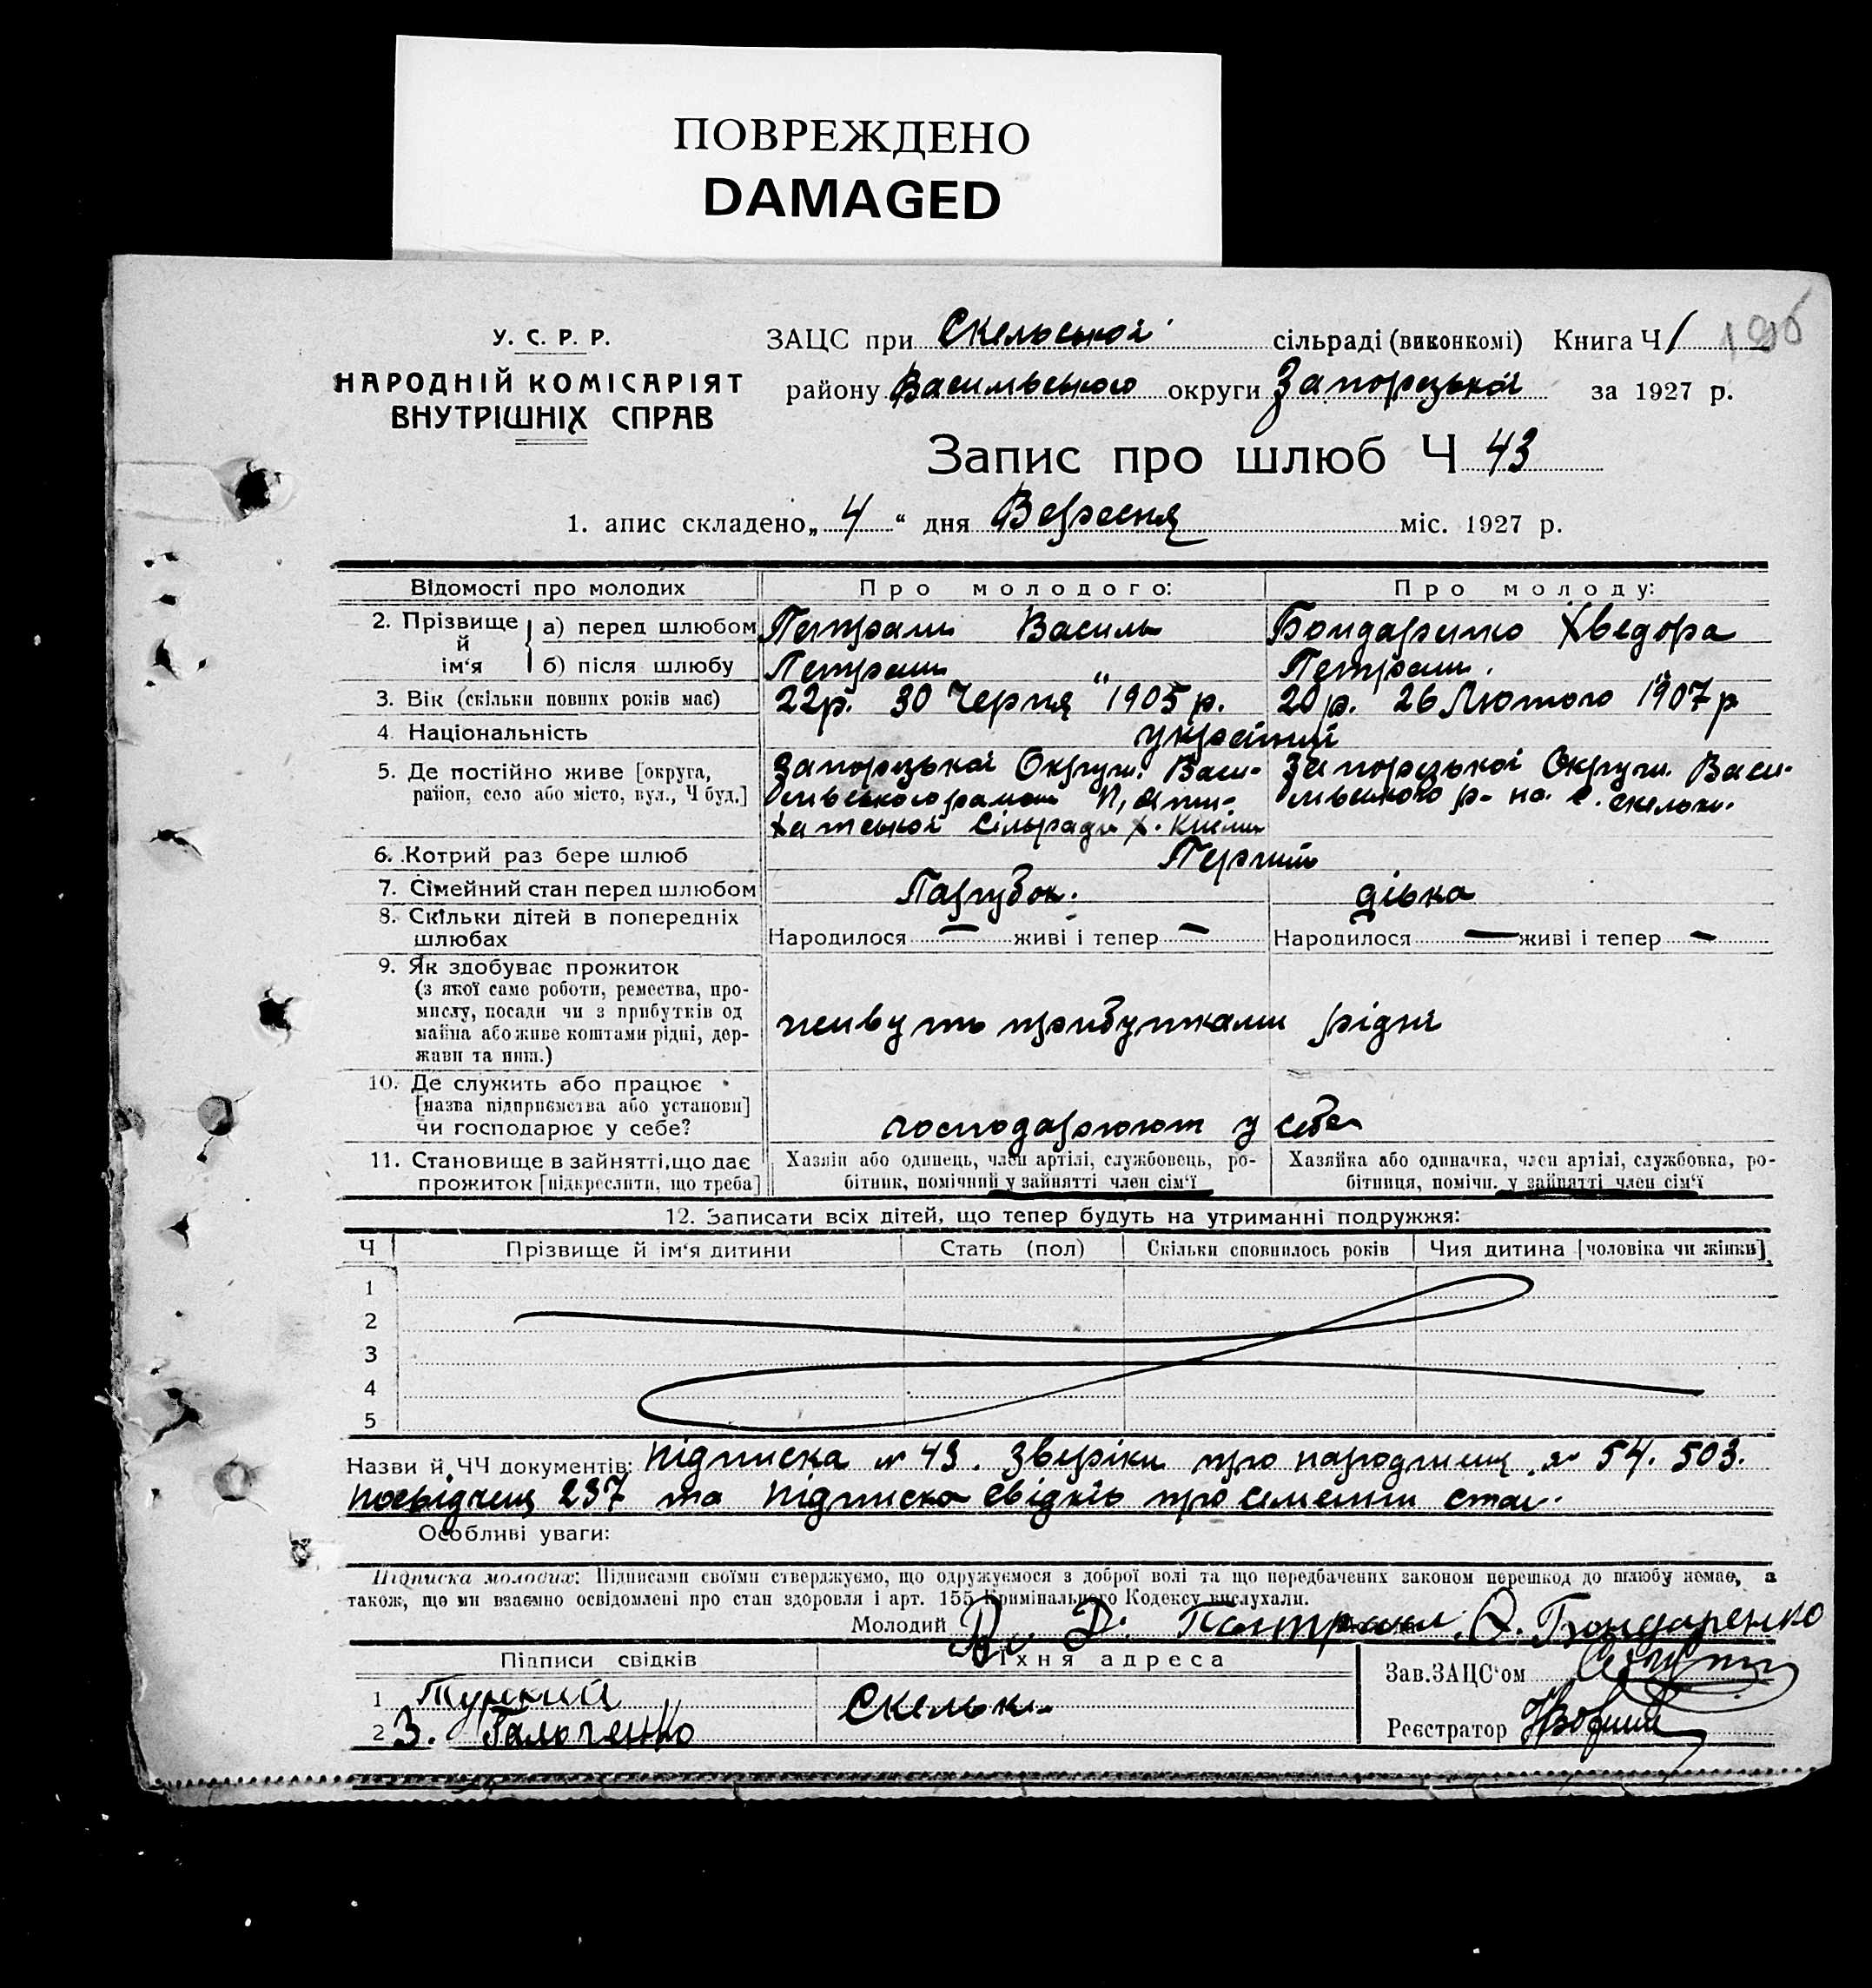 ПОВРЕЖДЕНО
DAMAGED
196
У. С. Р. Р.
НАРОДНІЙ КОМІСАРІЯТ
ВНУТРІШНІХ СПРАВ
ЗАЦС при Скельської сільраді (виконкомі) Книга Ч 1
району Васильвського округи Запорізької за 1927 р.
Запис про шлюб Ч 43
1. апис складено „ 4 “ дня Вересня міс. 1927 р.
Відомості про молодих Про молодого: Про молоду:
2. Прізвище й ім‘я а) перед шлюбом Петраш Василь Бондаренко Хведора
б) після шлюбу Петраш Петраш
3. Вік (скільки повних років має) 22р. 30 Черня 1905 р. 20 р. 26 Лютого 1907 р
4. Національність українці
5. Де постійно живе [округа, район, село або місто, вул., Ч буд.]
Запорізької Округи. Васи-
Запорізької Округи. Васи-
хатської Сільради х.
львського р-на с. скельки.
6. Котрий раз бере шлюб Перший
7. Сімейний стан перед шлюбом Парубок. дівка
8. Скільки дітей в попередніх шлюбах Народилося — живі і тепер — Народилося — живі і тепер —
9. Як здобуває прожиток
(з якої саме роботи, ремества, про-
мислу, посади чи з прибутків од
майна або живе коштами рідні, дер-
жави та инш.)
живуть прибутками рідні
10. Де служить або працює
[назва підприємства або установи]
чи господарює у себе?
господарюют у себе
11. Становище в зайнятті, що дає
прожиток [підкреслити, що треба]
Хазяїн або одинець, член артілі, службовець, ро-
бітник, помічний у зайнятті член сім‘ї
Хазяйка або одиначка, член артілі, службовка, ро-
бітниця, помічн. у зайнятті член сім‘ї
12. Записати всіх дітей, що тепер будуть на утриманні подружжя:
Ч Прізвище й ім‘я дитини Стать (пол) Скільки сповнилось років Чия дитина [чоловіка чи жінки]
1
2
3
4
5
Назви й ЧЧ документів: Підписка № 43. про народження № 54. 503.
посвідчен 237 та підписка свідків про семейни стан.
Особливі уваги:
Підписка молодих: Підписами своїми стверджуємо, що одружуємося з доброї волі та що передбачених законом перешкод до шлюбу немає, а
також, що ми взаємно освідомлені про стан здоровля і арт. 155 Кримінального Кодексу вислухали.
Молодий О. Бондаренко
Підписи свідків Їхня адреса Зав.ЗАЦС‘ом
1 Скельки
2 З. Галоченко Реєстратор